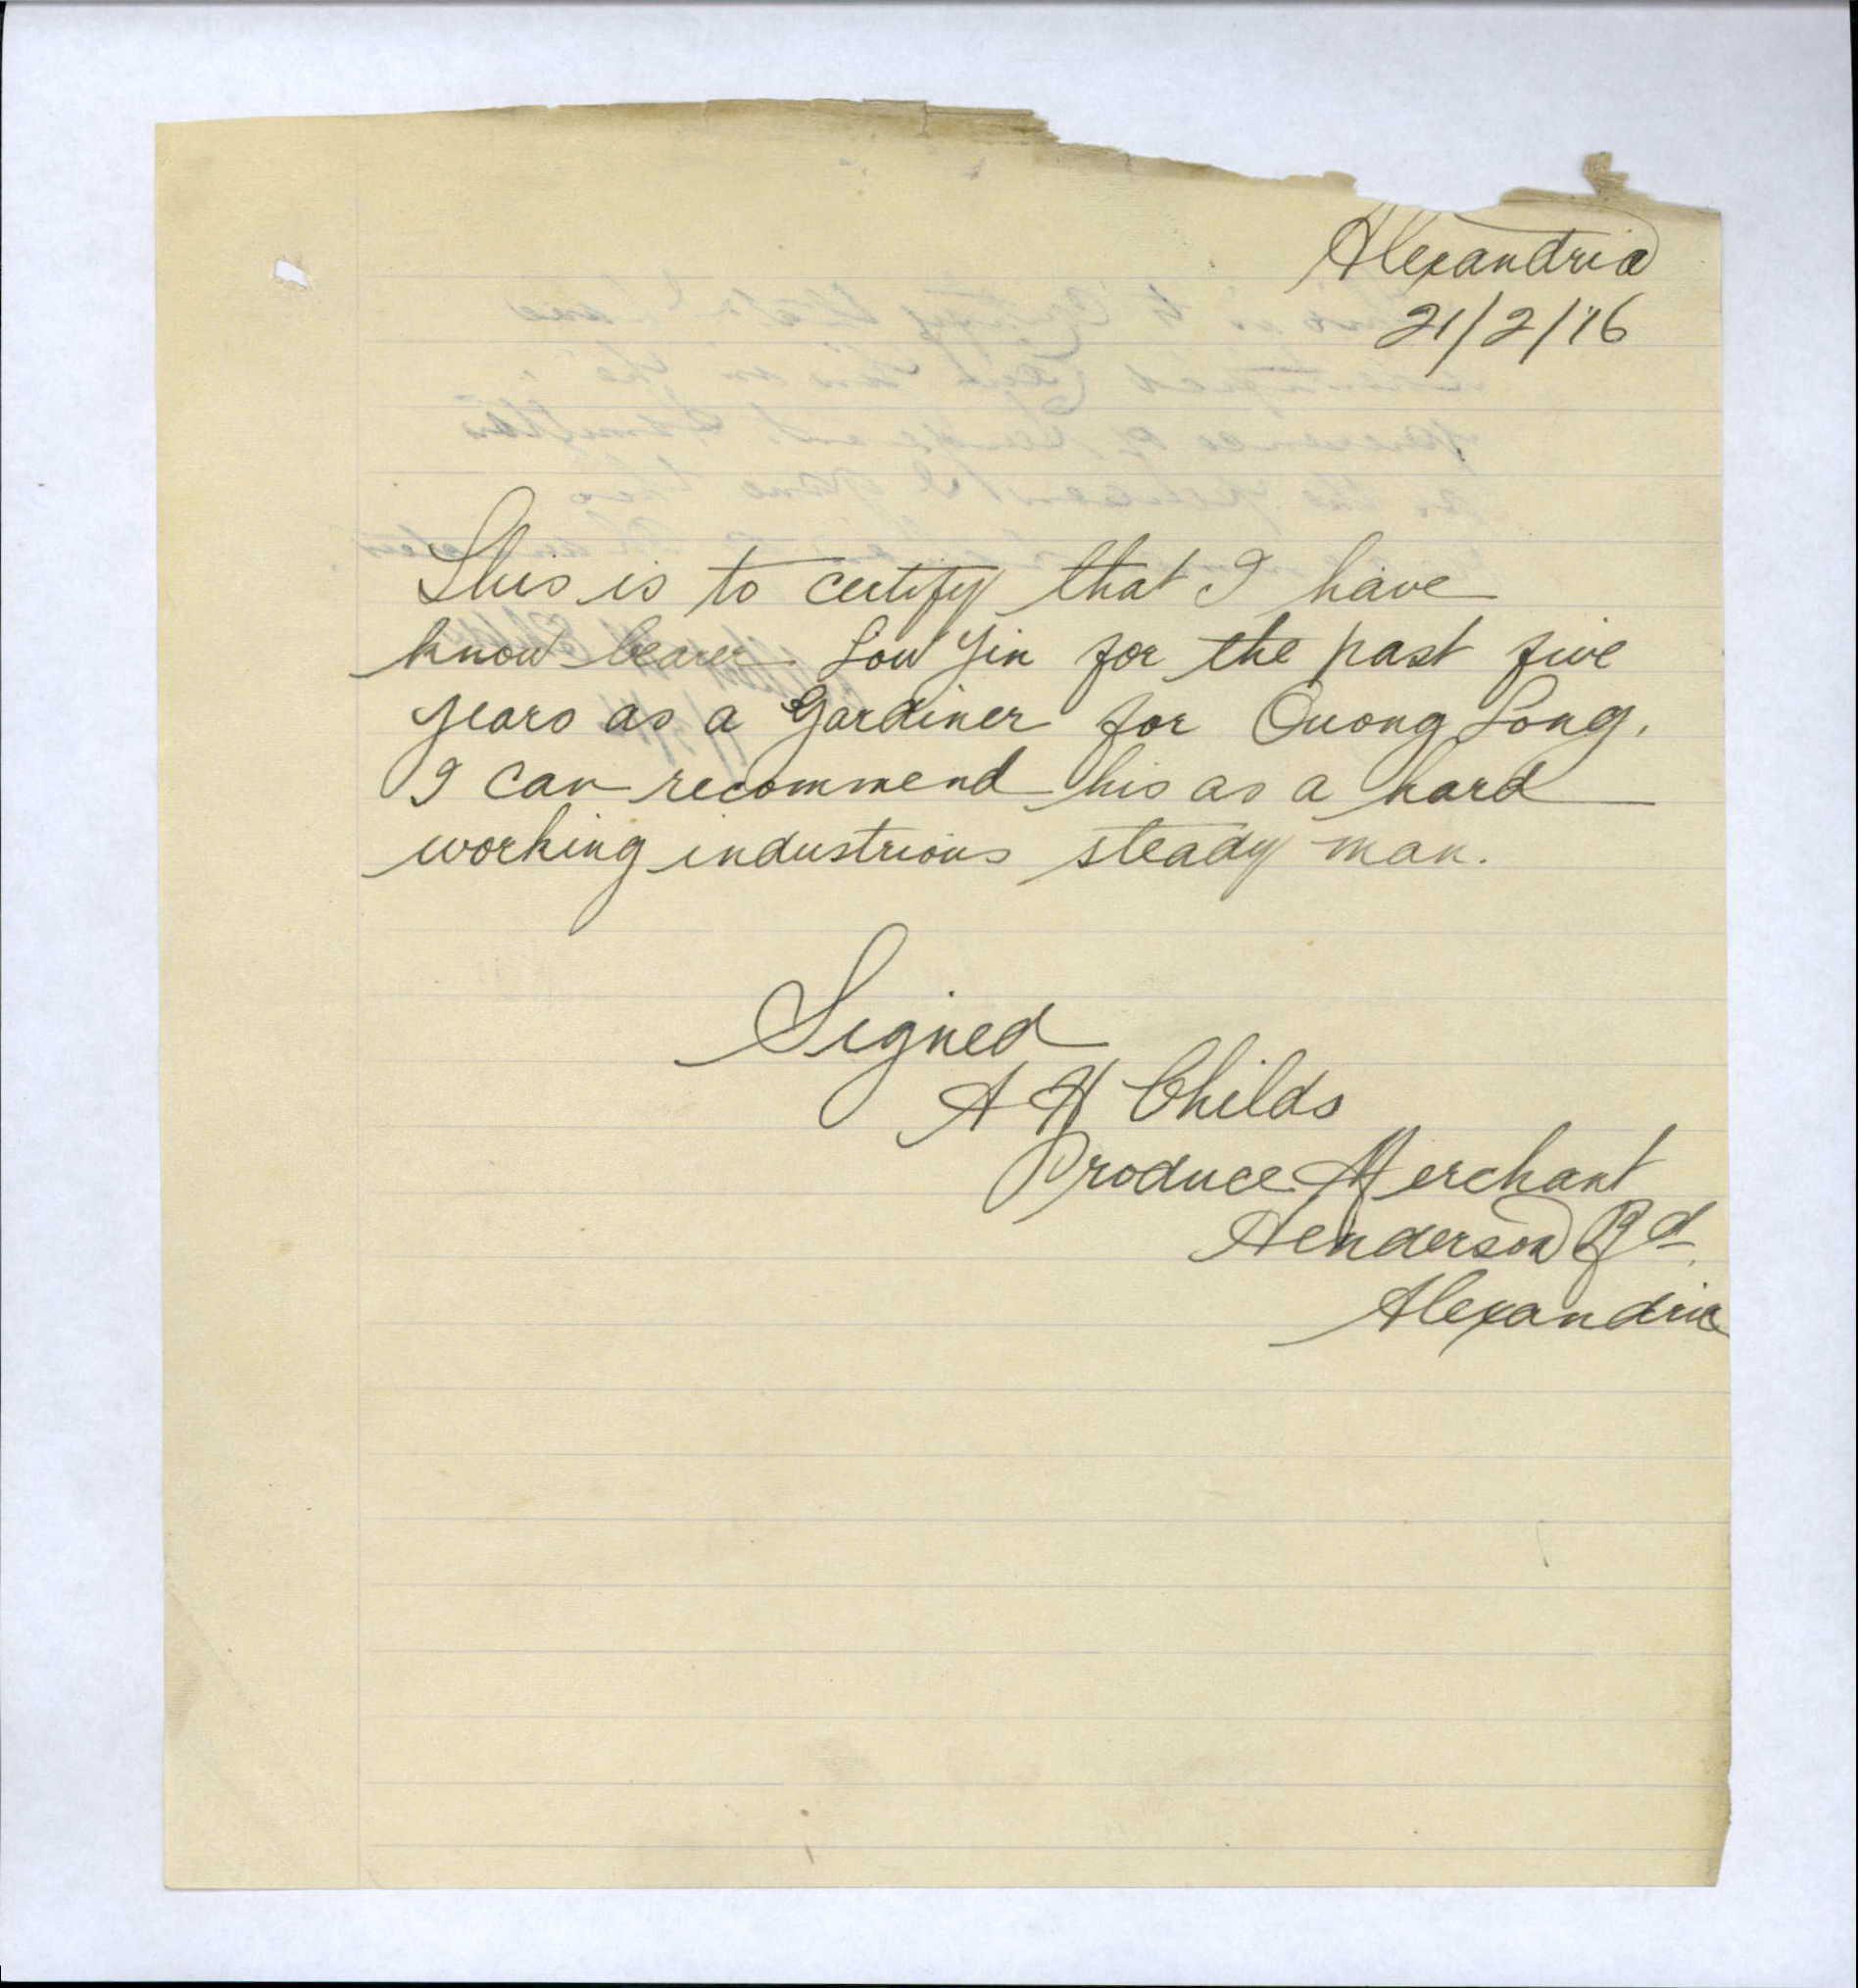 Alexandria
21/2/16
This is to certify that I have
know bearer Low Yin for the past five
years as a Gardiner for Quong Long.
I can recommend his as a hard
working industrious steady man.
Signed
A H Childs
Produce Merchant
Henderson Rd
Alexandria